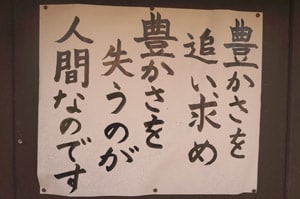 豊かさを
追い求め
豊かさを
失うのが
人間なのです